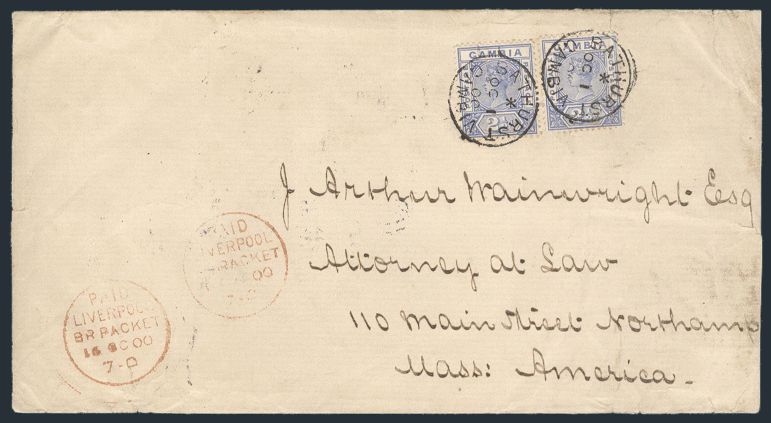 GAMBIA
GAMBIA
BATHURST GAMBIA
BATHURST GAMBIA
J Arthur Wainwright Esq
Attorney at Law
110 Main Street Northamp
Mass: America.
PAID
LIVERPOOL
BR PACKET
00
7-P
PAID
LIVERPOOL
BR PACKET
16 00
7-P